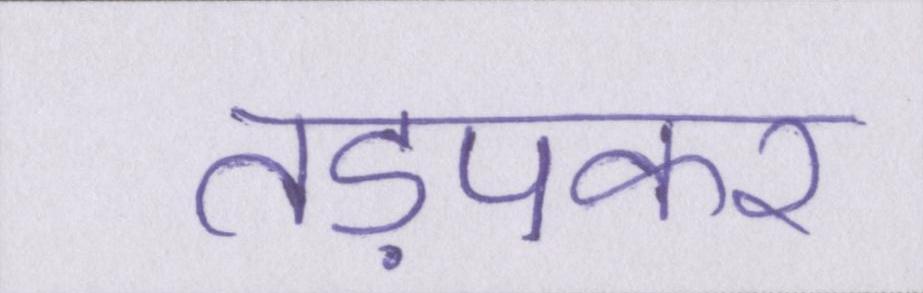 तड़पकर